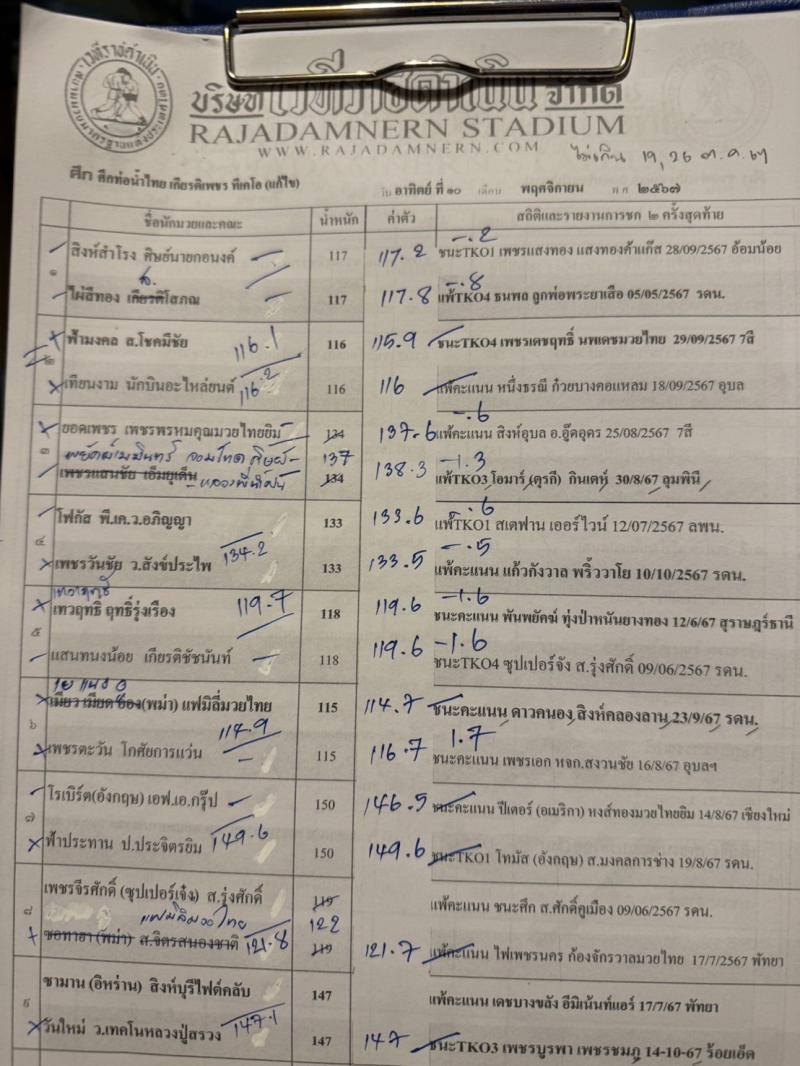 บริษัท เวทีราชดำเนิน จำกัด
RAJADAMNERN STADIUM
WWW.RAJADAMNERN.COM
19, 26 ต.ค. 67
ศึก ศึกท่อน้ำไทย เกียรติเพชร ทีเคโอ (แก้ไข) วัน อาทิตย์ ที่ ๑๐ เดือน พฤศจิกายน พ.ศ. ๒๕๖๗
ชื่อนักมวยและคณะ น้ำหนัก ค่าตัว สถิติและรายงานการชก ๒ ครั้งสุดท้าย
-.2
สิงห์สำโรง ศิษย์นายกอนงค์ 117 117.2 ชนะTKO1 เพชรแสงทอง แสงทองค้าแก๊ส 28/09/2567 อ้อมน้อย
๑
-.8
ไผ่สีทอง เกียรติโสภณ 117 117.8 แพ้TKO4 ธนพล ลูกพ่อพระยาเสือ 05/05/2567 รดน.
ฟ้ามงคล ส.โชคมีชัย 116.1 116 115.9 ชนะTKO4 เพชรเดชฤทธิ์ นพเดชมวยไทย 29/09/2567 7สี
๒
เทียนงาม นักบินอะไหล่ยนต์ 116.2 116 116 แพ้คะแนน หนึ่งธรณี ก๋วยบางคอแหลม 18/09/2567 อุบล
-.6
ยอดเพชร เพชรพรหมคุณมวยไทยยิม 134 137.6 แพ้คะแนน สิงห์อุบล อ.อู๊ดอุดร 25/08/2567 7สี
๓ 137 -1.3
เพชรแสนชัย เอ็มยูเด็น 134 138.3 แพ้TKO3 โอมาร์ (ตุรกี) กินเดห์ 30/8/67 ลุมพินี
-.6
โฟกัส พี.เค.ว.อภิญญา 133 133.6 แพ้TKO1 สเตฟาน เออร์ไวน์ 12/07/2567 ลพน.
๔
-.5
เพชรวันชัย ว.สังข์ประไพ 134.2 133 133.5 แพ้คะแนน แก้วกังวาล พริ้ววาโย 10/10/2567 รดน.
-1.6
เทวฤทธิ์ ฤทธิ์รุ่งเรือง 119.7 118 119.6 ชนะคะแนน พันพยัคฆ์ ทุ่งป่าหนันยางทอง 12/6/67 สุราษฎร์ธานี
๕
-1.6
แสนทนงน้อย เกียรติชัชนันท์ 118 119.6 ชนะTKO4 ซุปเปอร์จัง ส.รุ่งศักดิ์ 09/06/2567 รดน.
(พม่า) แฟมิลี่มวยไทย 115 114.7 ชนะคะแนน ดาวคนอง สิงห์คลองลาน 23/9/67 รดน.
๖ 114.9 1.7
เพชรตะวัน โกศัยการแว่น 115 116.7 ชนะคะแนน เพชรเอก หจก.สงวนชัย 16/8/67 อุบลฯ
โรเบิร์ต(อังกฤษ) เอฟ.เอ.กรุ๊ป 150 146.5 ชนะคะแนน ปีเตอร์ (อเมริกา) หงส์ทองมวยไทยยิม 14/8/67 เชียงใหม่
๗
ฟ้าประทาน ป.ประจิตรยิม 149.6 150 149.6 ชนะTKO1 โทมัส (อังกฤษ) ส.มงคลการช่าง 19/8/67 รดน.
เพชรจีรศักดิ์ (ซุปเปอร์เจ๋ง) ส.รุ่งศักดิ์ 119 แพ้คะแนน ชนะศึก ส.ศักดิ์คูเมือง 09/06/2567 รดน.
๘ แฟมิลี่มวยไทย 122
ซอทายา (พม่า) ส.จิตรสนองชาติ 121.8 119 121.7 แพ้คะแนน ไฟเพชรนคร ก้องจักรวาลมวยไทย 17/7/2567 พัทยา
ซามาน (อิหร่าน) สิงห์บุรีไฟต์คลับ 147 แพ้คะแนน เดชบางขลัง อีมิเน้นท์แอร์ 17/7/67 พัทยา
๙
วันใหม่ ว.เทคโนหลวงปู่สรวง 147.1 147 147 ชนะTKO3 เพชรบูรพา เพชรชมภู 14-10-67 ร้อยเอ็ด